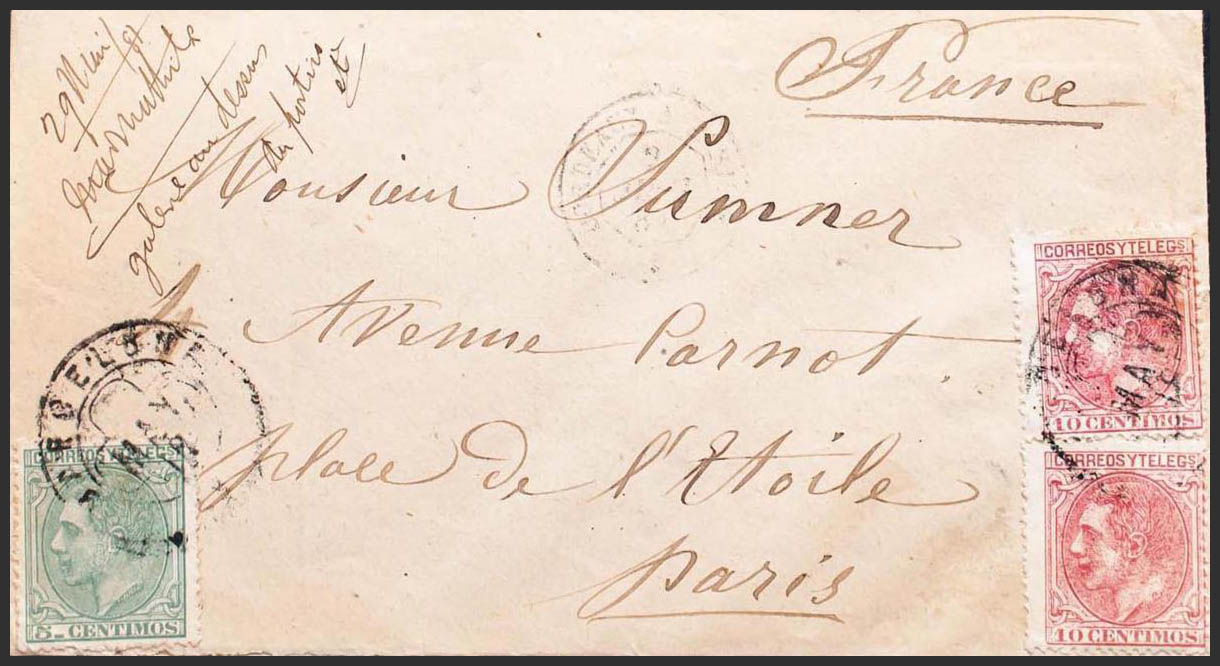 29 Mai/81
galerie au dessus
du portier
France
Monsieur Sumner
4 Avenue Carnot.
place de l'Etoile
Paris
CORREOS Y TELEGS
10 CENTIMOS
CORREOS Y TELEGS
10 CENTIMOS
BARCELONA
MAY
CORREOS Y TELEGS
5 CENTIMOS
MAY